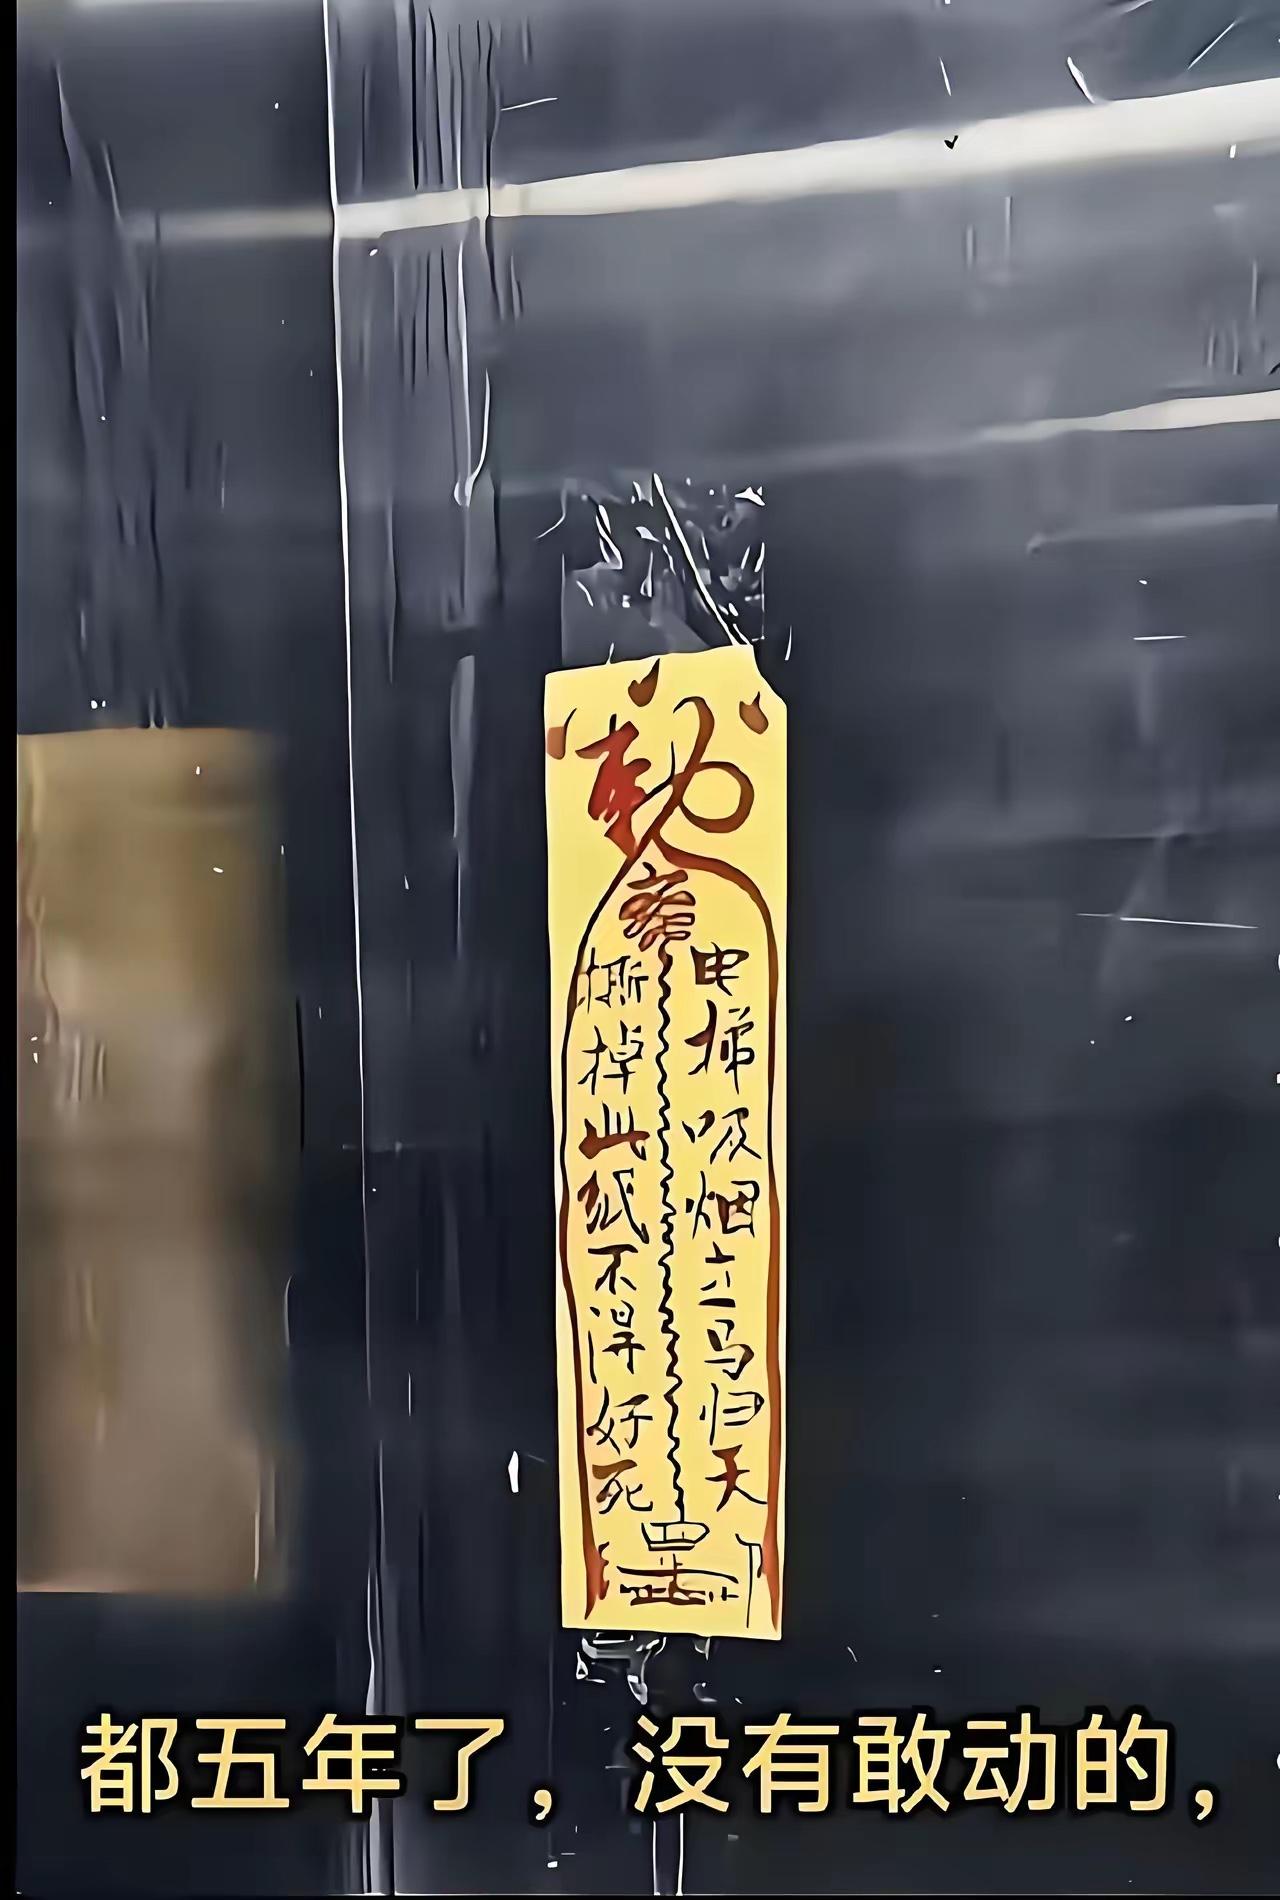 敕
电梯吸烟立马归天
撕掉此纸不得好死
都五年了，没有敢动的，